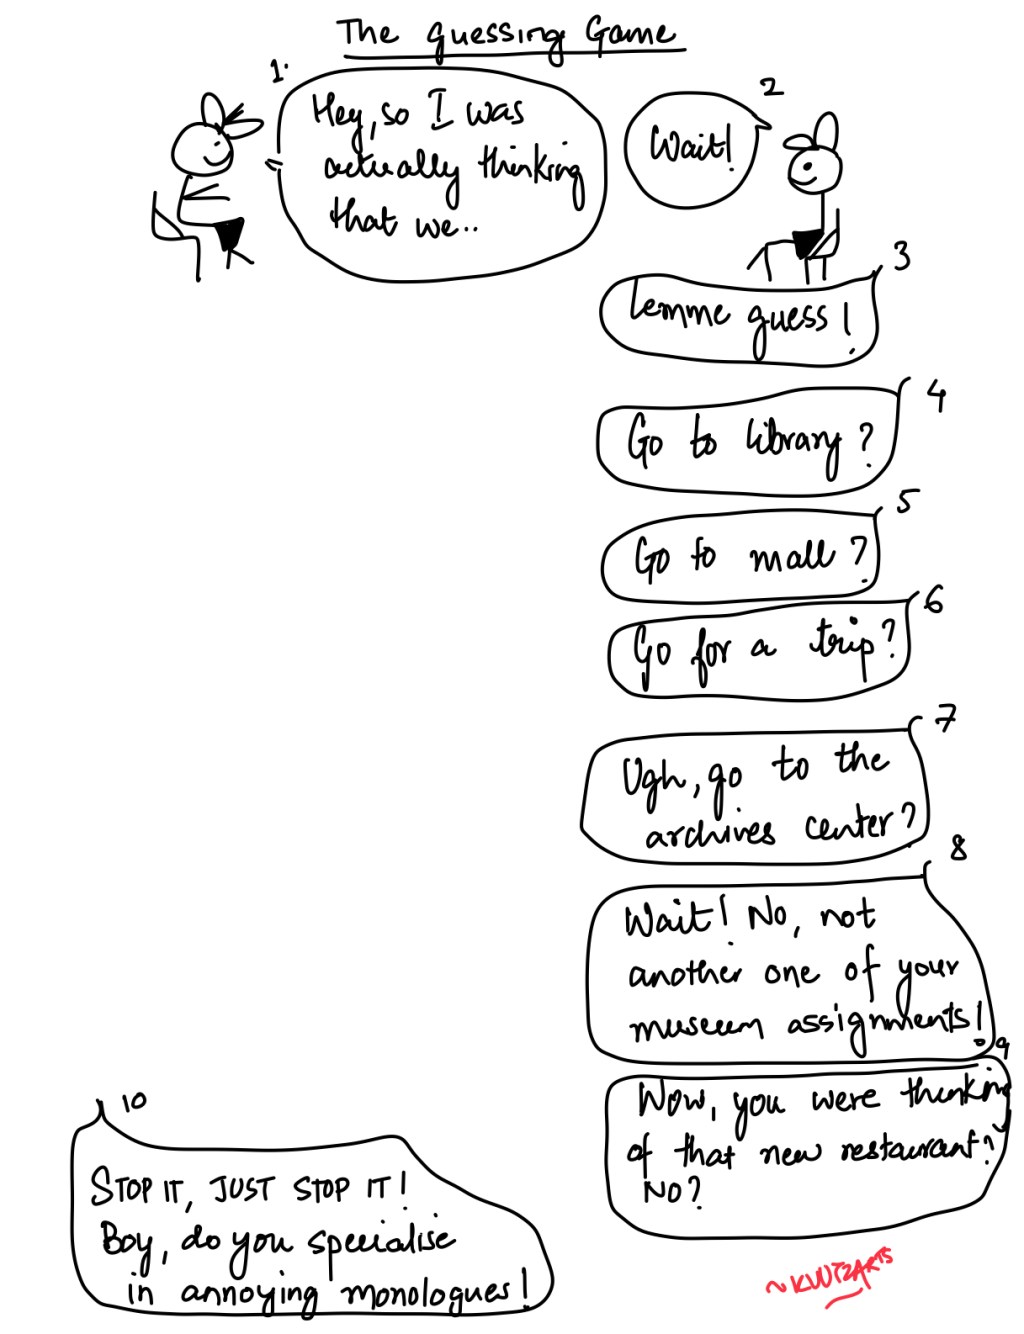 The guessing Game
1.
Hey, so I was
actually thinking
that we..
2
Wait!
3
Lemme guess!
4
Go to library?
5
Go to mall?
6
Go for a trip?
7
Ugh, go to the
archives center?
8
Wait! No, not
another one of your
museum assignments!
9
Wow, you were thinking
of that new restaurant?
No?
10
STOP IT, JUST STOP IT!
Boy, do you specialise
in annoying monologues!